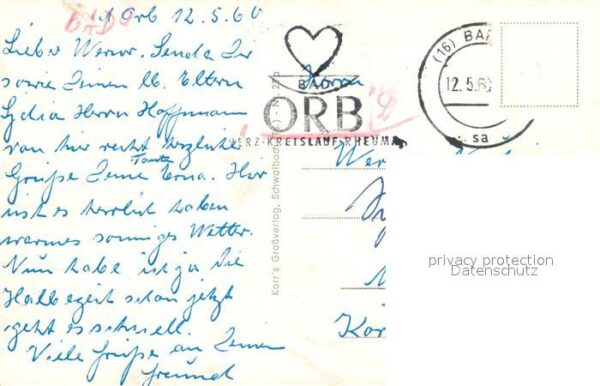 Orb 12.5.60
BAD
Lieber Werner. Sende Dir
sowie Deinen lb. Eltern
Lydia Herrn Hoffmann
von hier recht herzliche
Grüße Deine Tante Erna. Hier
ist es herrlich haben
warmes sonniges Wetter.
Nun habe ich ja die
Halbezeit schon jetzt
geht es schnell.
Viele Grüße an Deinen
Freund
BAD
ORB
HERZ-KREISLAUF-RHEUMA
(16) BAD
12.5.60
sa
Korr's Großverlag, Schwalbach
Herrn
Wer
Kor
privacy protection
Datenschutz